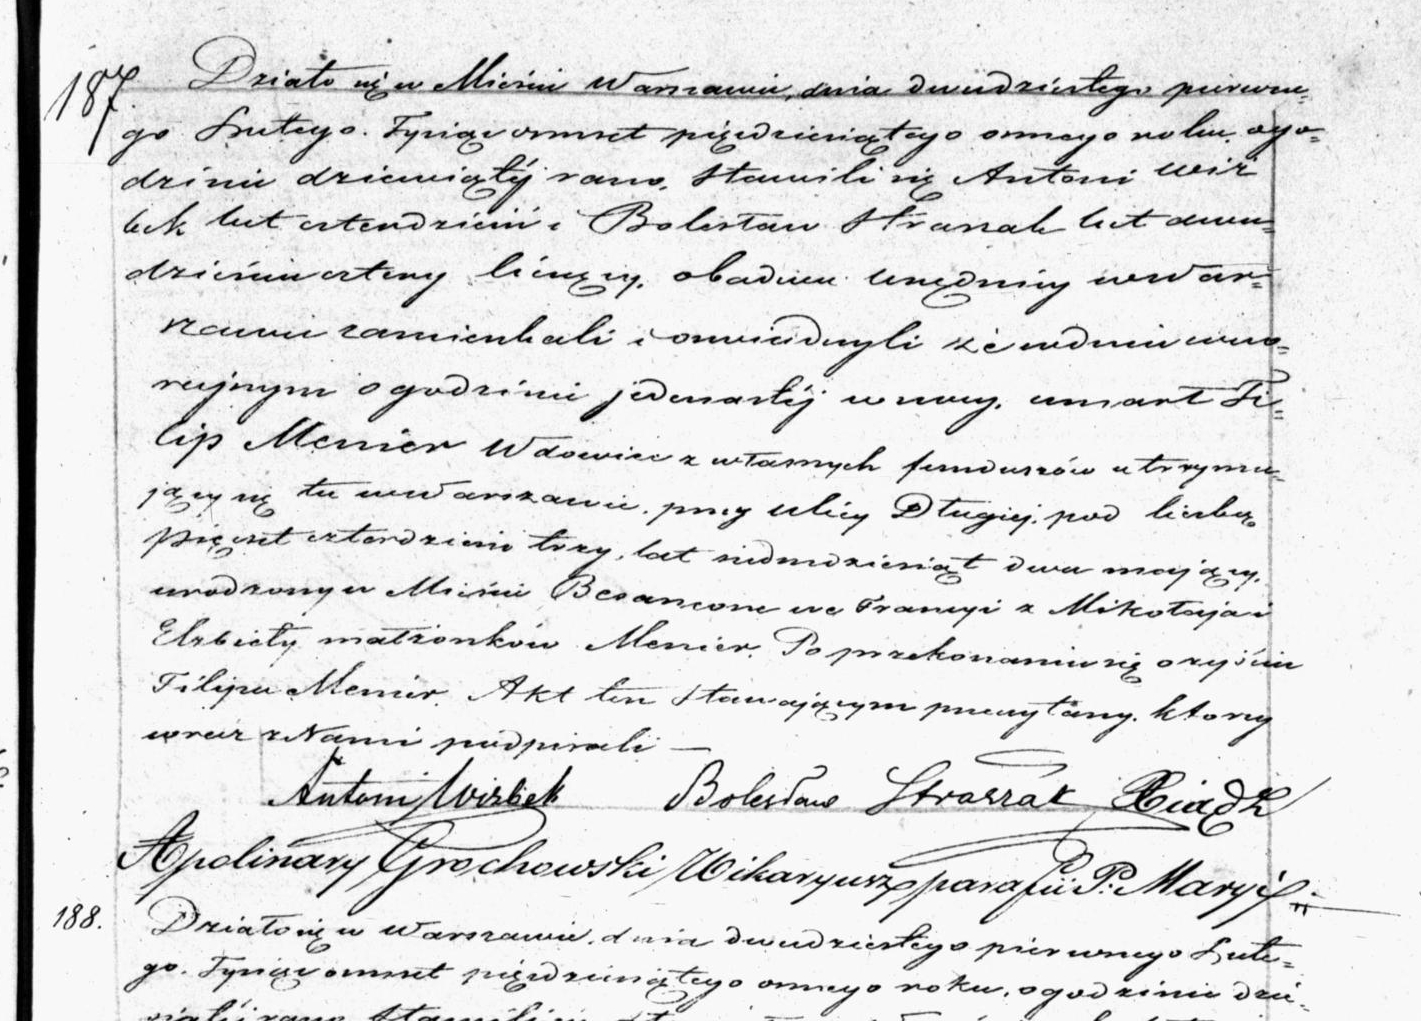 187. Działo się w Mieście Warszawie, dnia dwudziestego pierwsze=
go Lutego. Tysiąc ośmset pięćdziesiątego ósmego roku, o go=
dzinie dziewiątéj rano. Stawili się Antoni Wiz
bek lat czterdzieści i Bolesław Straszak lat dwa=
dzieścia cztery liczący, obadwa urzędnicy w War=
szawie zamieszkali i oświadczyli że w dniu wczo=
rajszym o godzinie jedenastéj w nocy, umarł Fi=
lip Menier Wdowiec z własnych funduszów utrzymu=
jący się tu w Warszawie, przy ulicy Długiéj, pod liczbą
pięćset czterdzieści trzy, lat siedmdziesiąt dwa mający,
urodzony w Mieście Besancone we Francyi z Mikołaja i
Elżbiety małżonków Menier. Po przekonaniu się o zejściu
Filipa Menier. Akt ten Stawającym przeczytany, którzy
wraz z Nami podpisali —
Antoni Wizbek Bolesław Straszak Xiądz
Apolinary Grochowski Wikaryusz parafii P. Maryi
188. Działo się w Warszawie, dnia dwudziestego pierwszego Lute=
go. Tysiąc ośmset pięćdziesiątego ósmego roku, o godzinie dzie=
wiątéj rano Stawili się